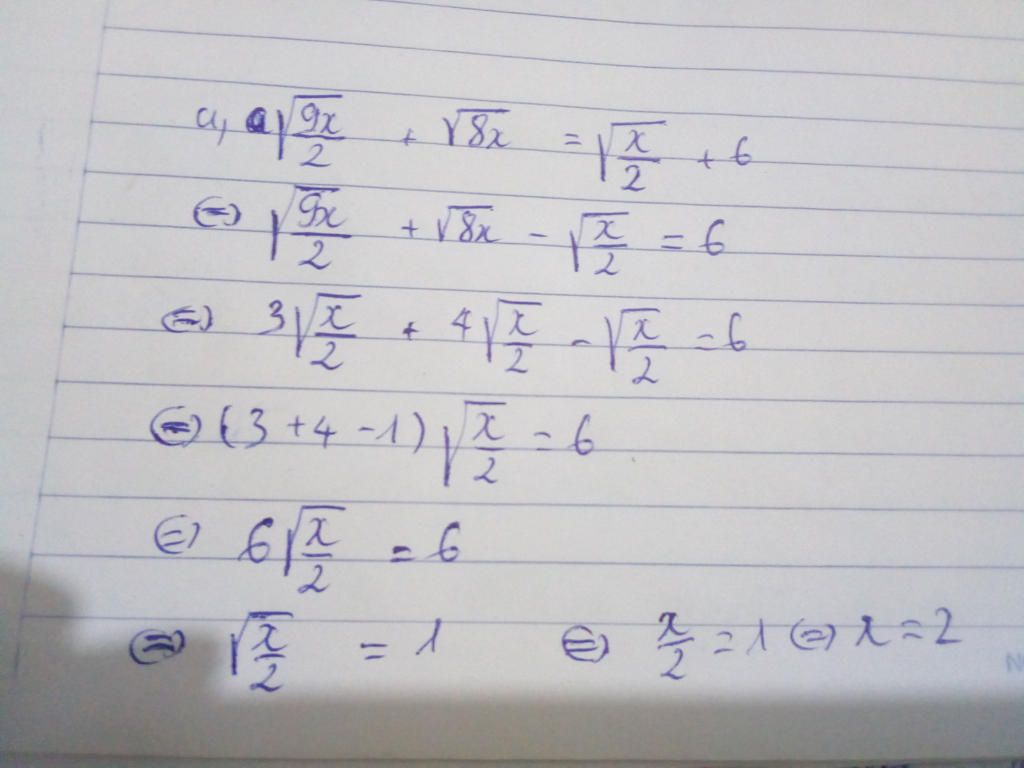 a, √(9x/2) + √8x = √(x/2) + 6
⇔ √(9x/2) + √8x - √(x/2) = 6
⇔ 3√(x/2) + 4√(x/2) - √(x/2) = 6
⇔ (3 + 4 - 1)√(x/2) = 6
⇔ 6√(x/2) = 6
⇔ √(x/2) = 1 ⇔ x/2 = 1 ⇔ x = 2